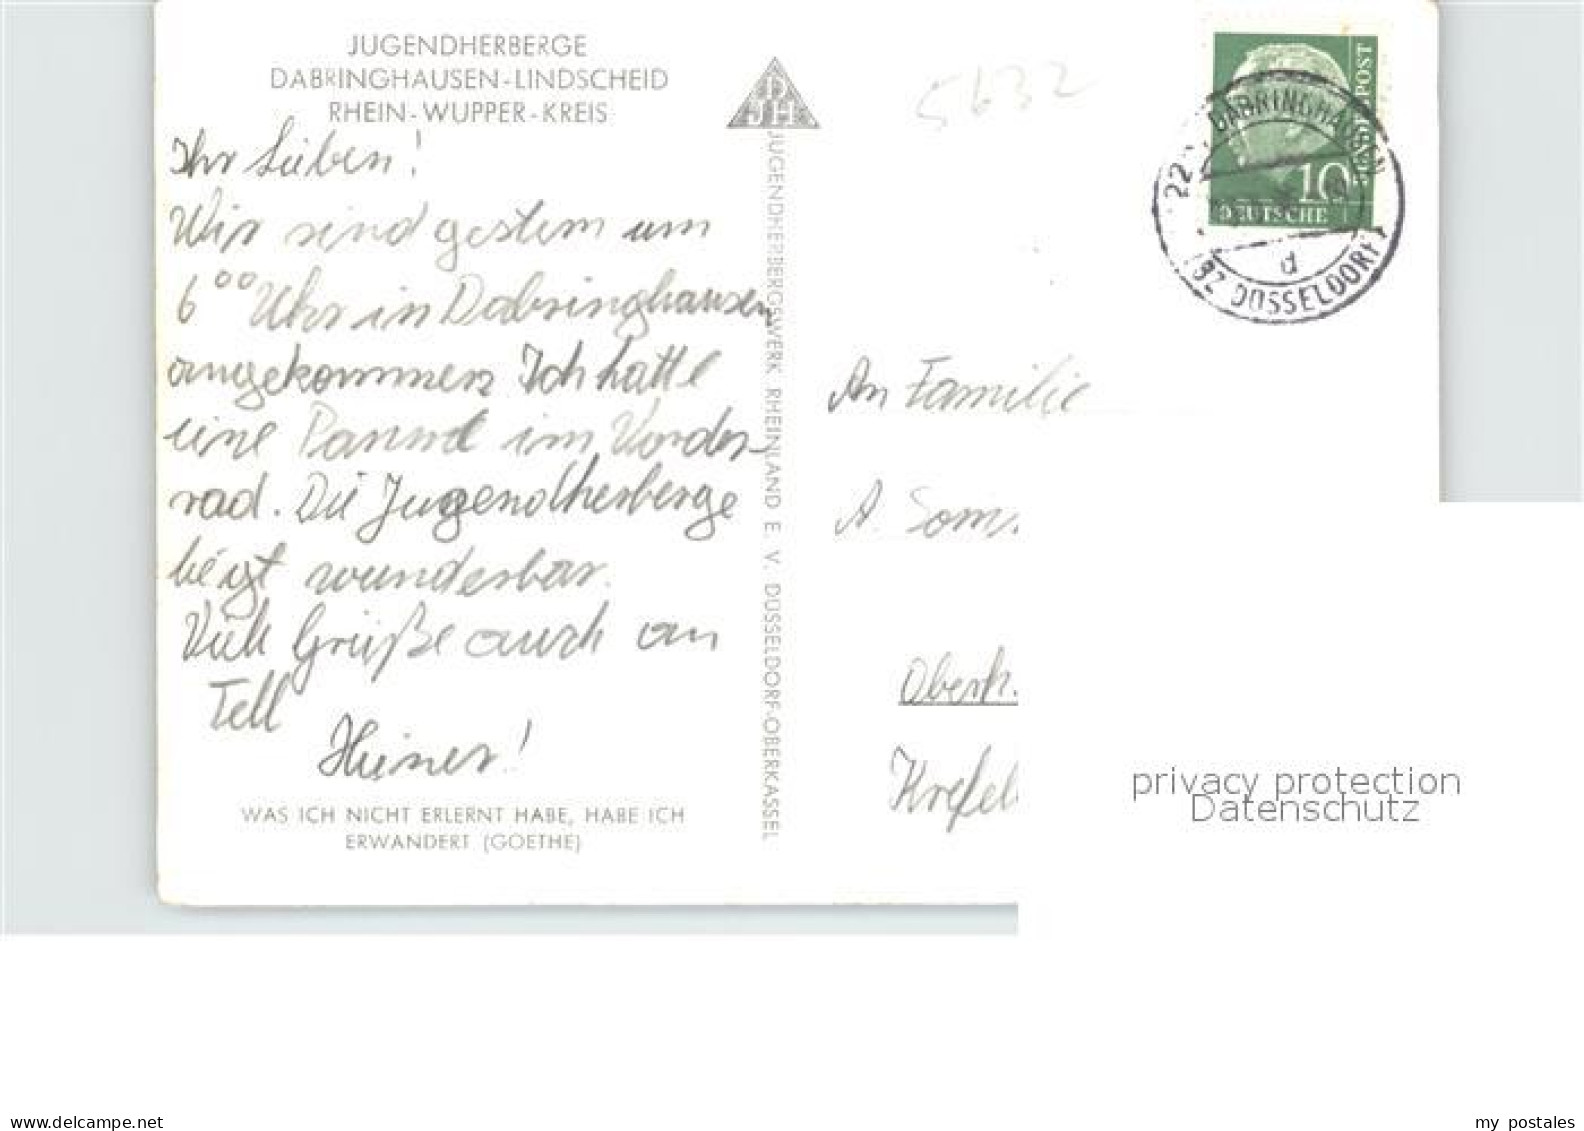 JUGENDHERBERGE
DABRINGHAUSEN-LINDSCHEID
RHEIN-WUPPER-KREIS
Ihr Lieben!
Wir sind gestern um
6⁰⁰ Uhr in Dabringhausen
angekommen Ich hatte
eine Panne im Vorder-
rad. Die Jugendherberge
liegt wunderbar.
Viele Grüße auch an
Tell
Heiner!
WAS ICH NICHT ERLERNT HABE, HABE ICH
ERWANDERT (GOETHE)
DJH
JUGENDHERBERGSWERK RHEINLAND E. V. DÜSSELDORF-OBERKASSEL
5632
DEUTSCHE
BUNDESPOST
10
22 DABRINGHAUSEN
BZ DÜSSELDORF
d
An Familie
A. Som
Oberk.
Krefel
privacy protection
Datenschutz
www.delcampe.net
my postales